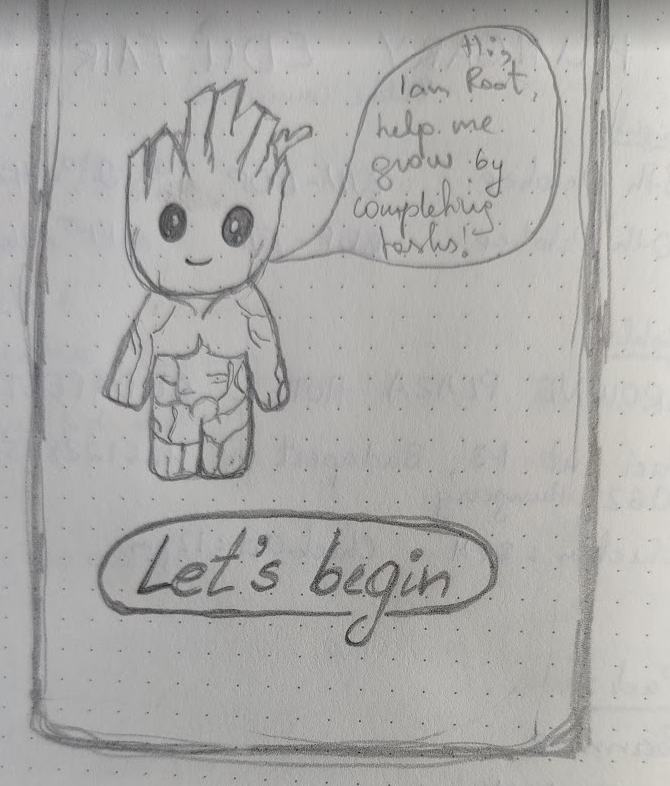 Hi,
I am Root,
help me
grow by
completing
tasks!
Let's begin